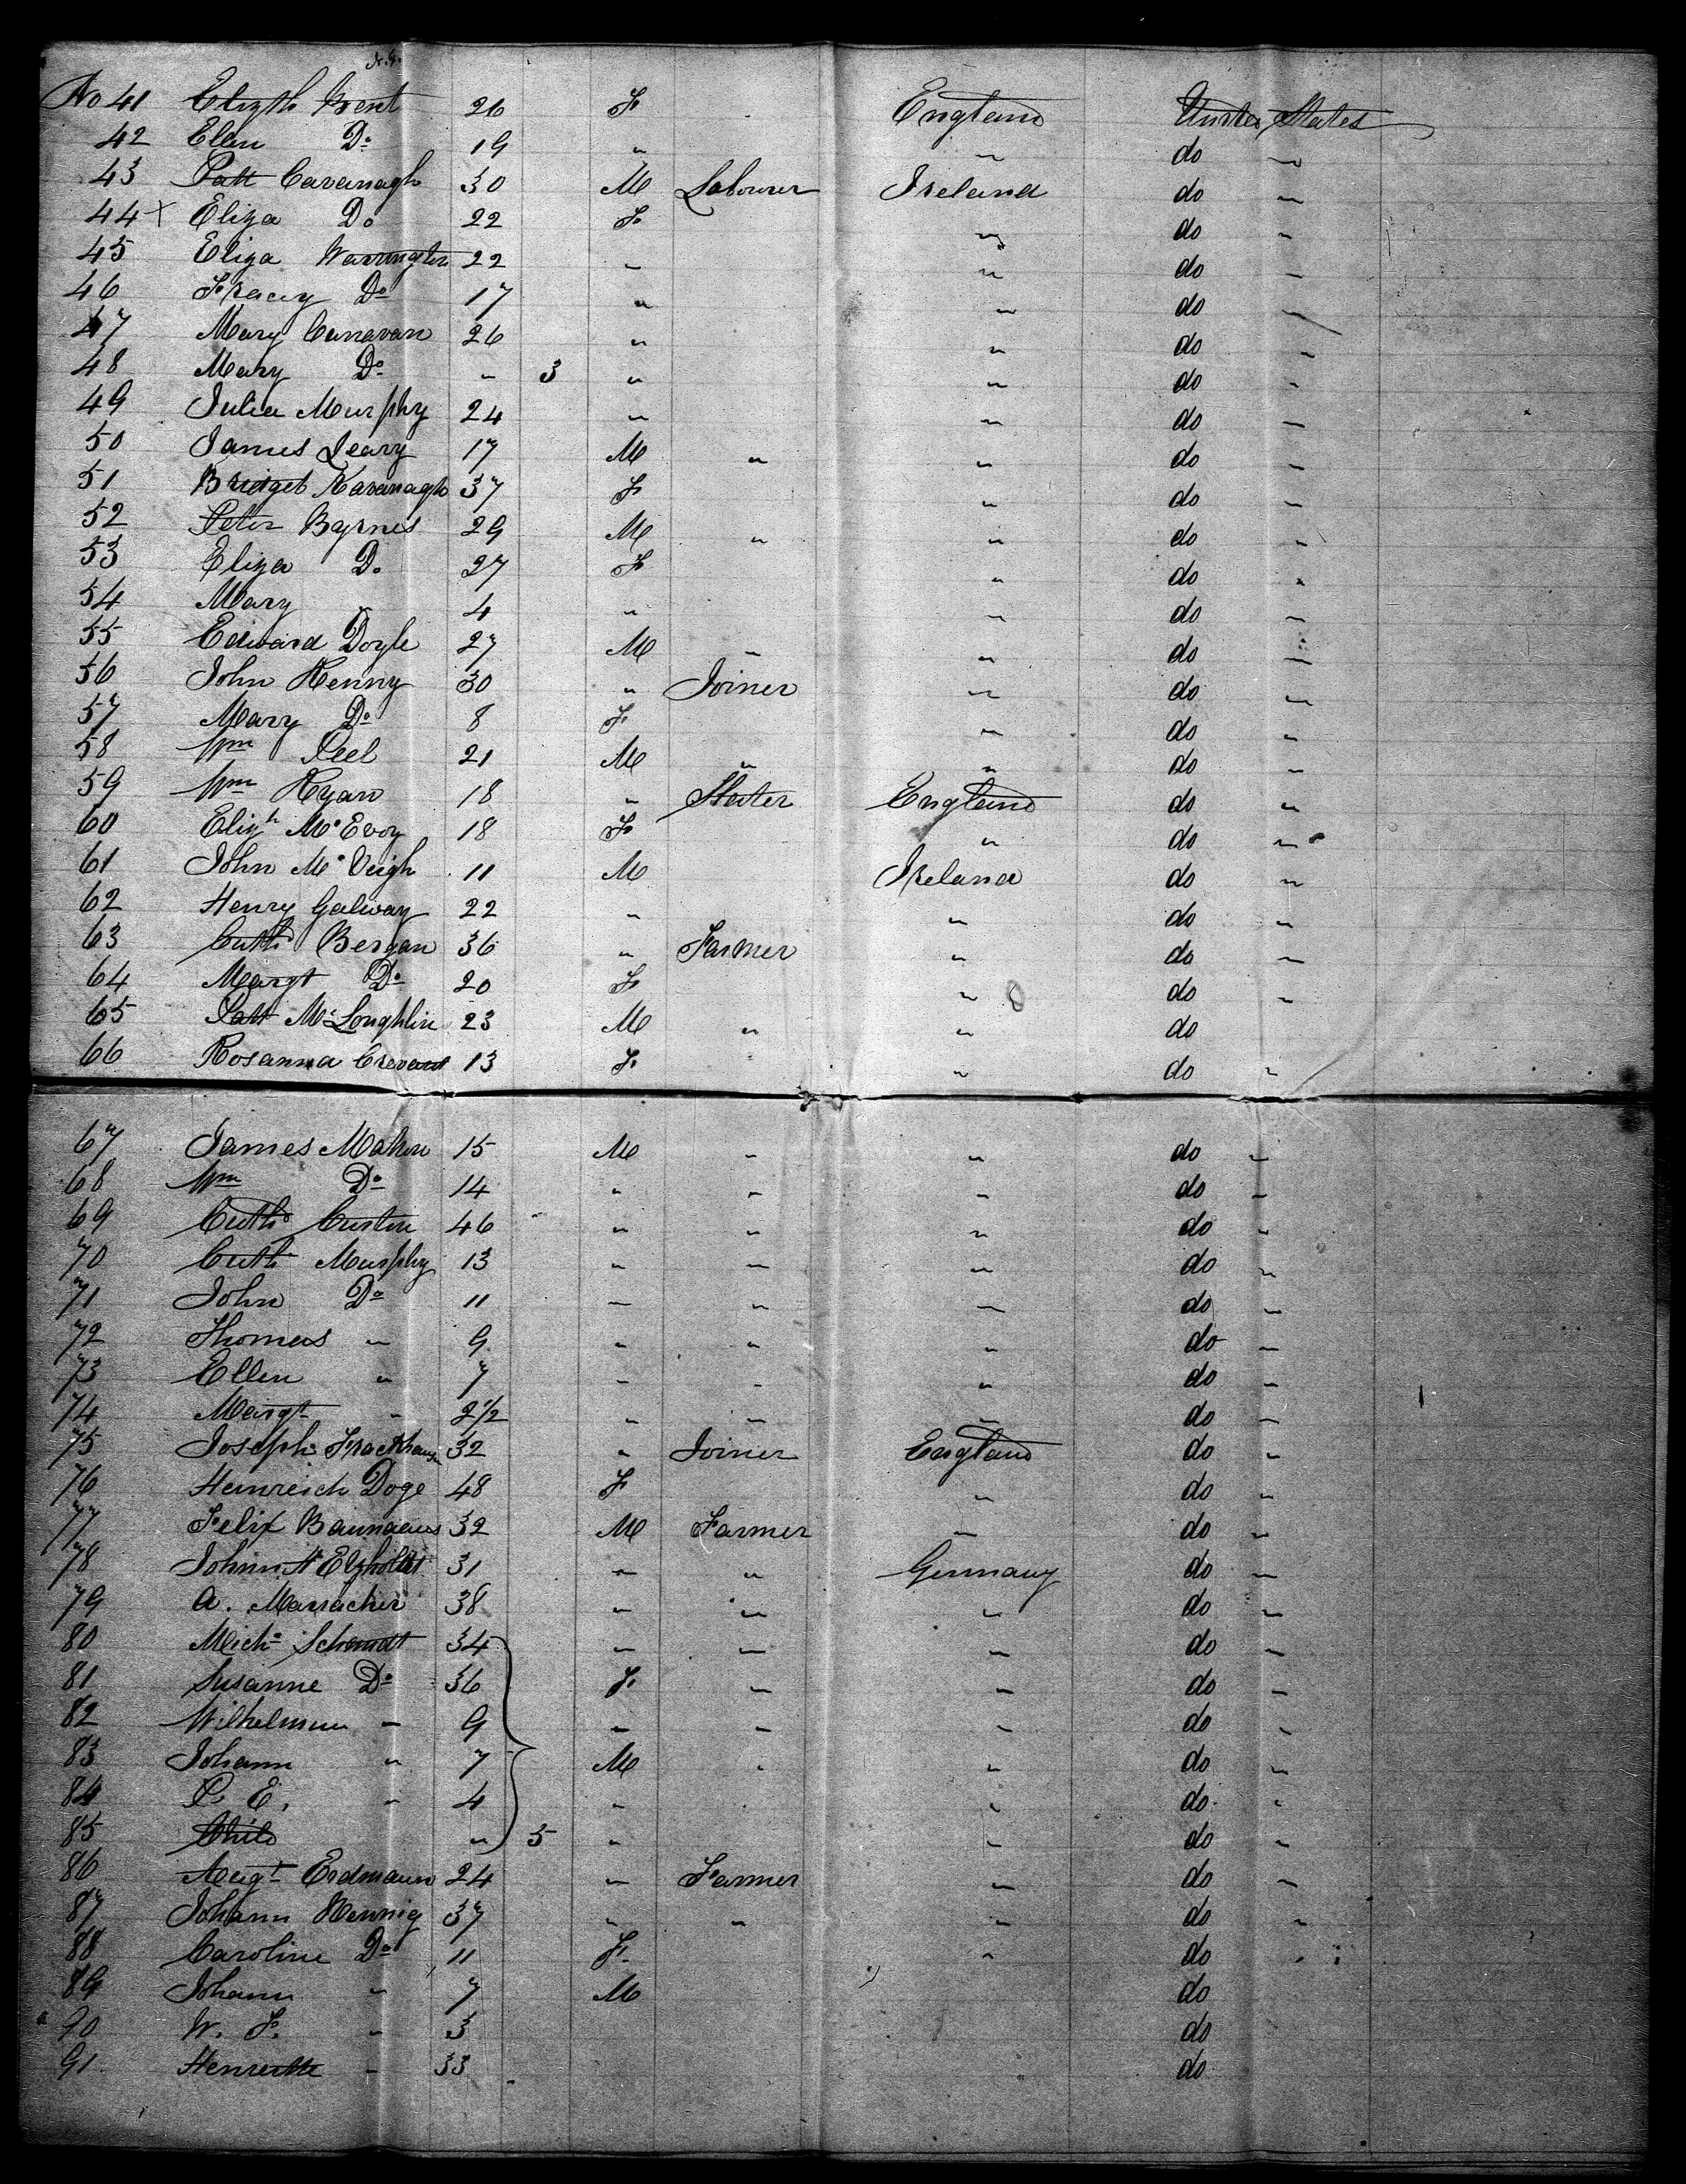 No 41 Elizth Brent 26 F England United States
42 Ellen Do 19 " " do "
43 Patt Cavanagh 30 M Labourer Ireland do "
44 x Eliza Do 22 F " do "
45 Eliza Warrington 22 " " do "
46 Do 17 " " do "
47 Mary Canavan 26 " " do "
48 Mary Do " 3 " " do "
49 Julia Murphy 24 " " do "
50 James Leary 17 M " " do "
51 Bridget Kavanagh 37 F " do "
52 Peter Byrnes 29 M " " do "
53 Eliza Do 27 F " do "
54 Mary 4 " " do "
55 Edward Doyle 27 M " " do "
56 John Kenny 30 " Joiner " do "
57 Mary Do 8 F " do "
58 Wm Peel 21 M " " do "
59 Wm Ryan 18 " Slater England do "
60 Elizh McEvoy 18 F " do "
61 John McVeigh 11 M Ireland do "
62 Henry Galway 22 " " do "
63 Bergan 36 " Farmer " do "
64 Margt Do 20 F " do "
65 Patt McLoughlin 23 M " " do
66 Rosanna 13 F " do "
67 James Mahon 15 M " " do "
68 Wm Do 14 " " " do "
69 46 " " " do "
70 Murphy 13 " " " do "
71 John Do 11 " " " do "
72 Thomas " 9 " " " do "
73 Ellen " 7 " " " do "
74 Margt " 2 1/2 " " " do "
75 Joseph 32 " Joiner England do "
76 Heinreich Doge 48 F " do "
77 Felix 32 M Farmer " do "
78 Johann H 31 " " Germany do "
79 A. 38 " " " do "
80 Michl Schmidt 34 " " " do "
81 Susanne Do 36 F " " do "
82 " 9 " " " do "
83 Johann " 7 M " " do "
84 P. E. " 4 " " do "
85 Child " 5 " " do "
86 Augt Erdmann 24 " Farmer " do "
87 Johann Hennig 37 " " " do "
88 Caroline Do 11 F " do "
89 Johann " 7 M do
90 W. F. " 3 do
91 " 33 do